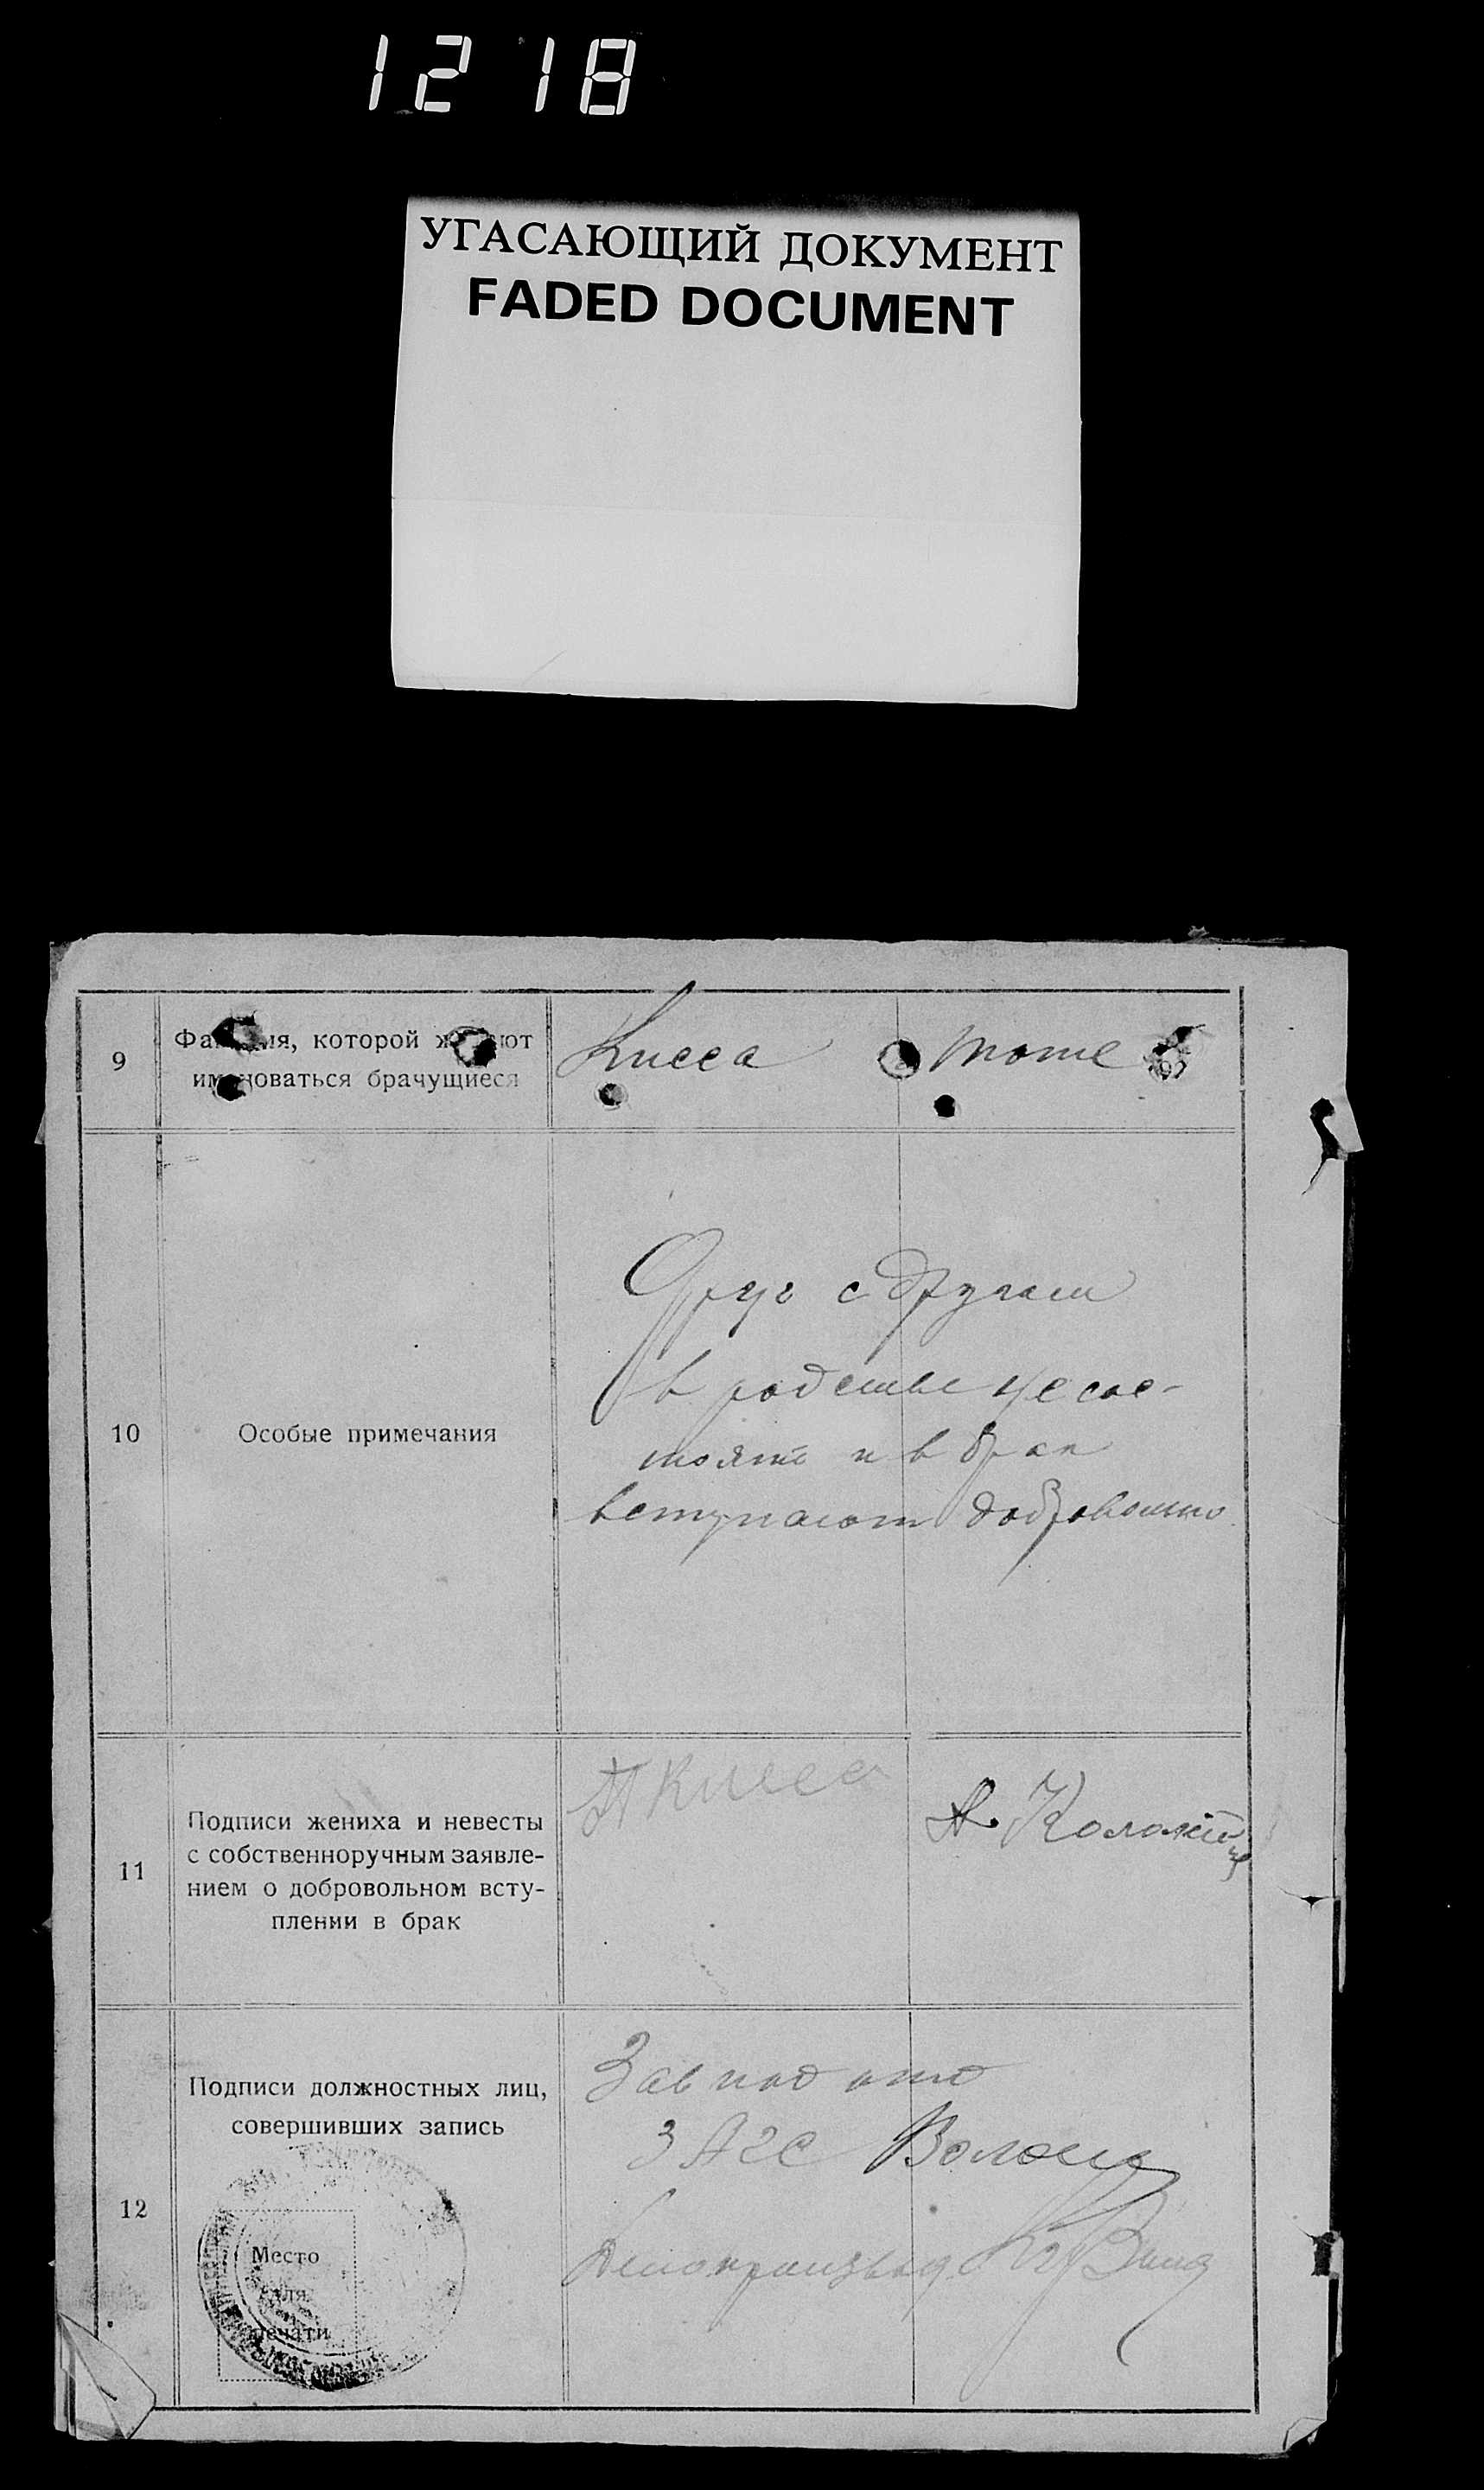 12 18
УГАСАЮЩИЙ ДОКУМЕНТ
FADED DOCUMENT
9
Фамилия, которой желают
именоваться брачущиеся
Кисса
тоже
10
Особые примечания
Друг с другом
в родстве не сос-
тоят и в брак
вступают добровольно
11
Подписи жениха и невесты
с собственноручным заявле-
нием о добровольном всту-
плении в брак
Кисса
А.
12
Подписи должностных лиц,
совершивших запись
Место
для
печати
Зав под отд
ЗАГС
Делопроизвод